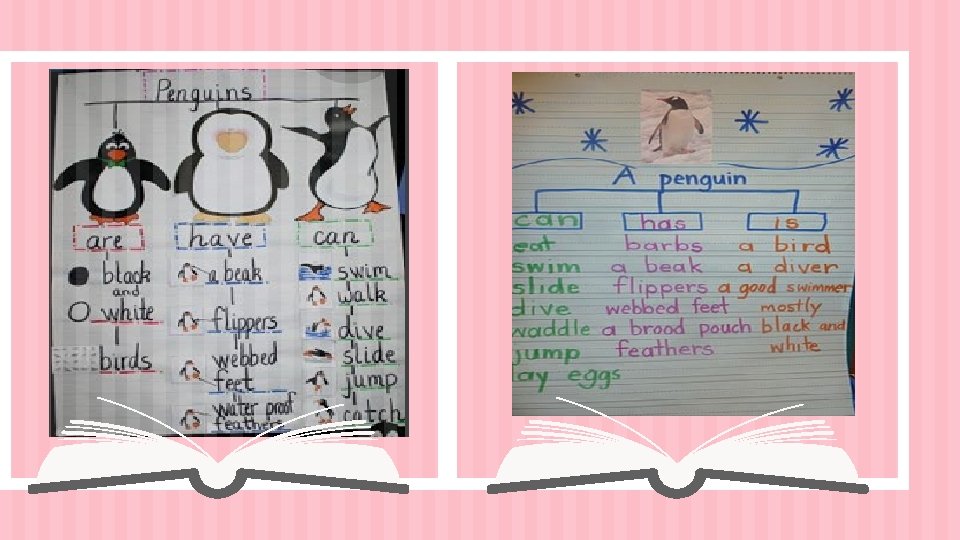 Penguins
are
black
and
white
birds
have
a beak
flippers
webbed
feet
water proof
feathers
can
swim
walk
dive
slide
jump
catch
A penguin
can
eat
swim
slide
dive
waddle
jump
lay eggs
has
barbs
a beak
flippers
webbed feet
a brood pouch
feathers
is
a bird
a diver
a good swimmer
mostly
black and
white